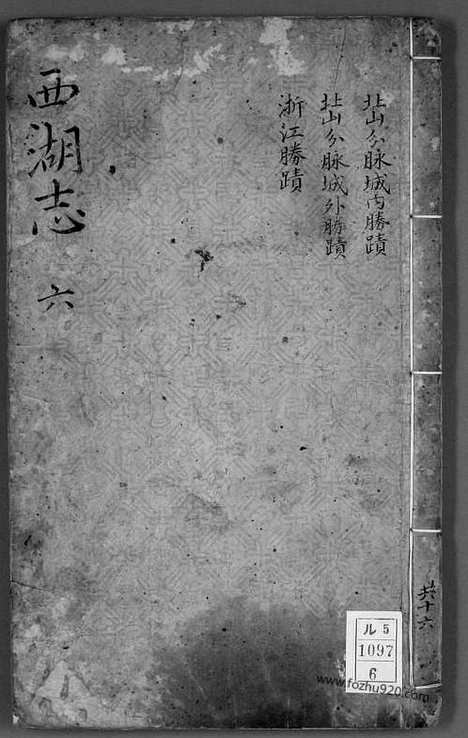 北山分脉城内勝蹟
北山分脉城外勝蹟
浙江勝蹟
西湖志
六
共十六
ル5
1097
6
www.fozhu920.com